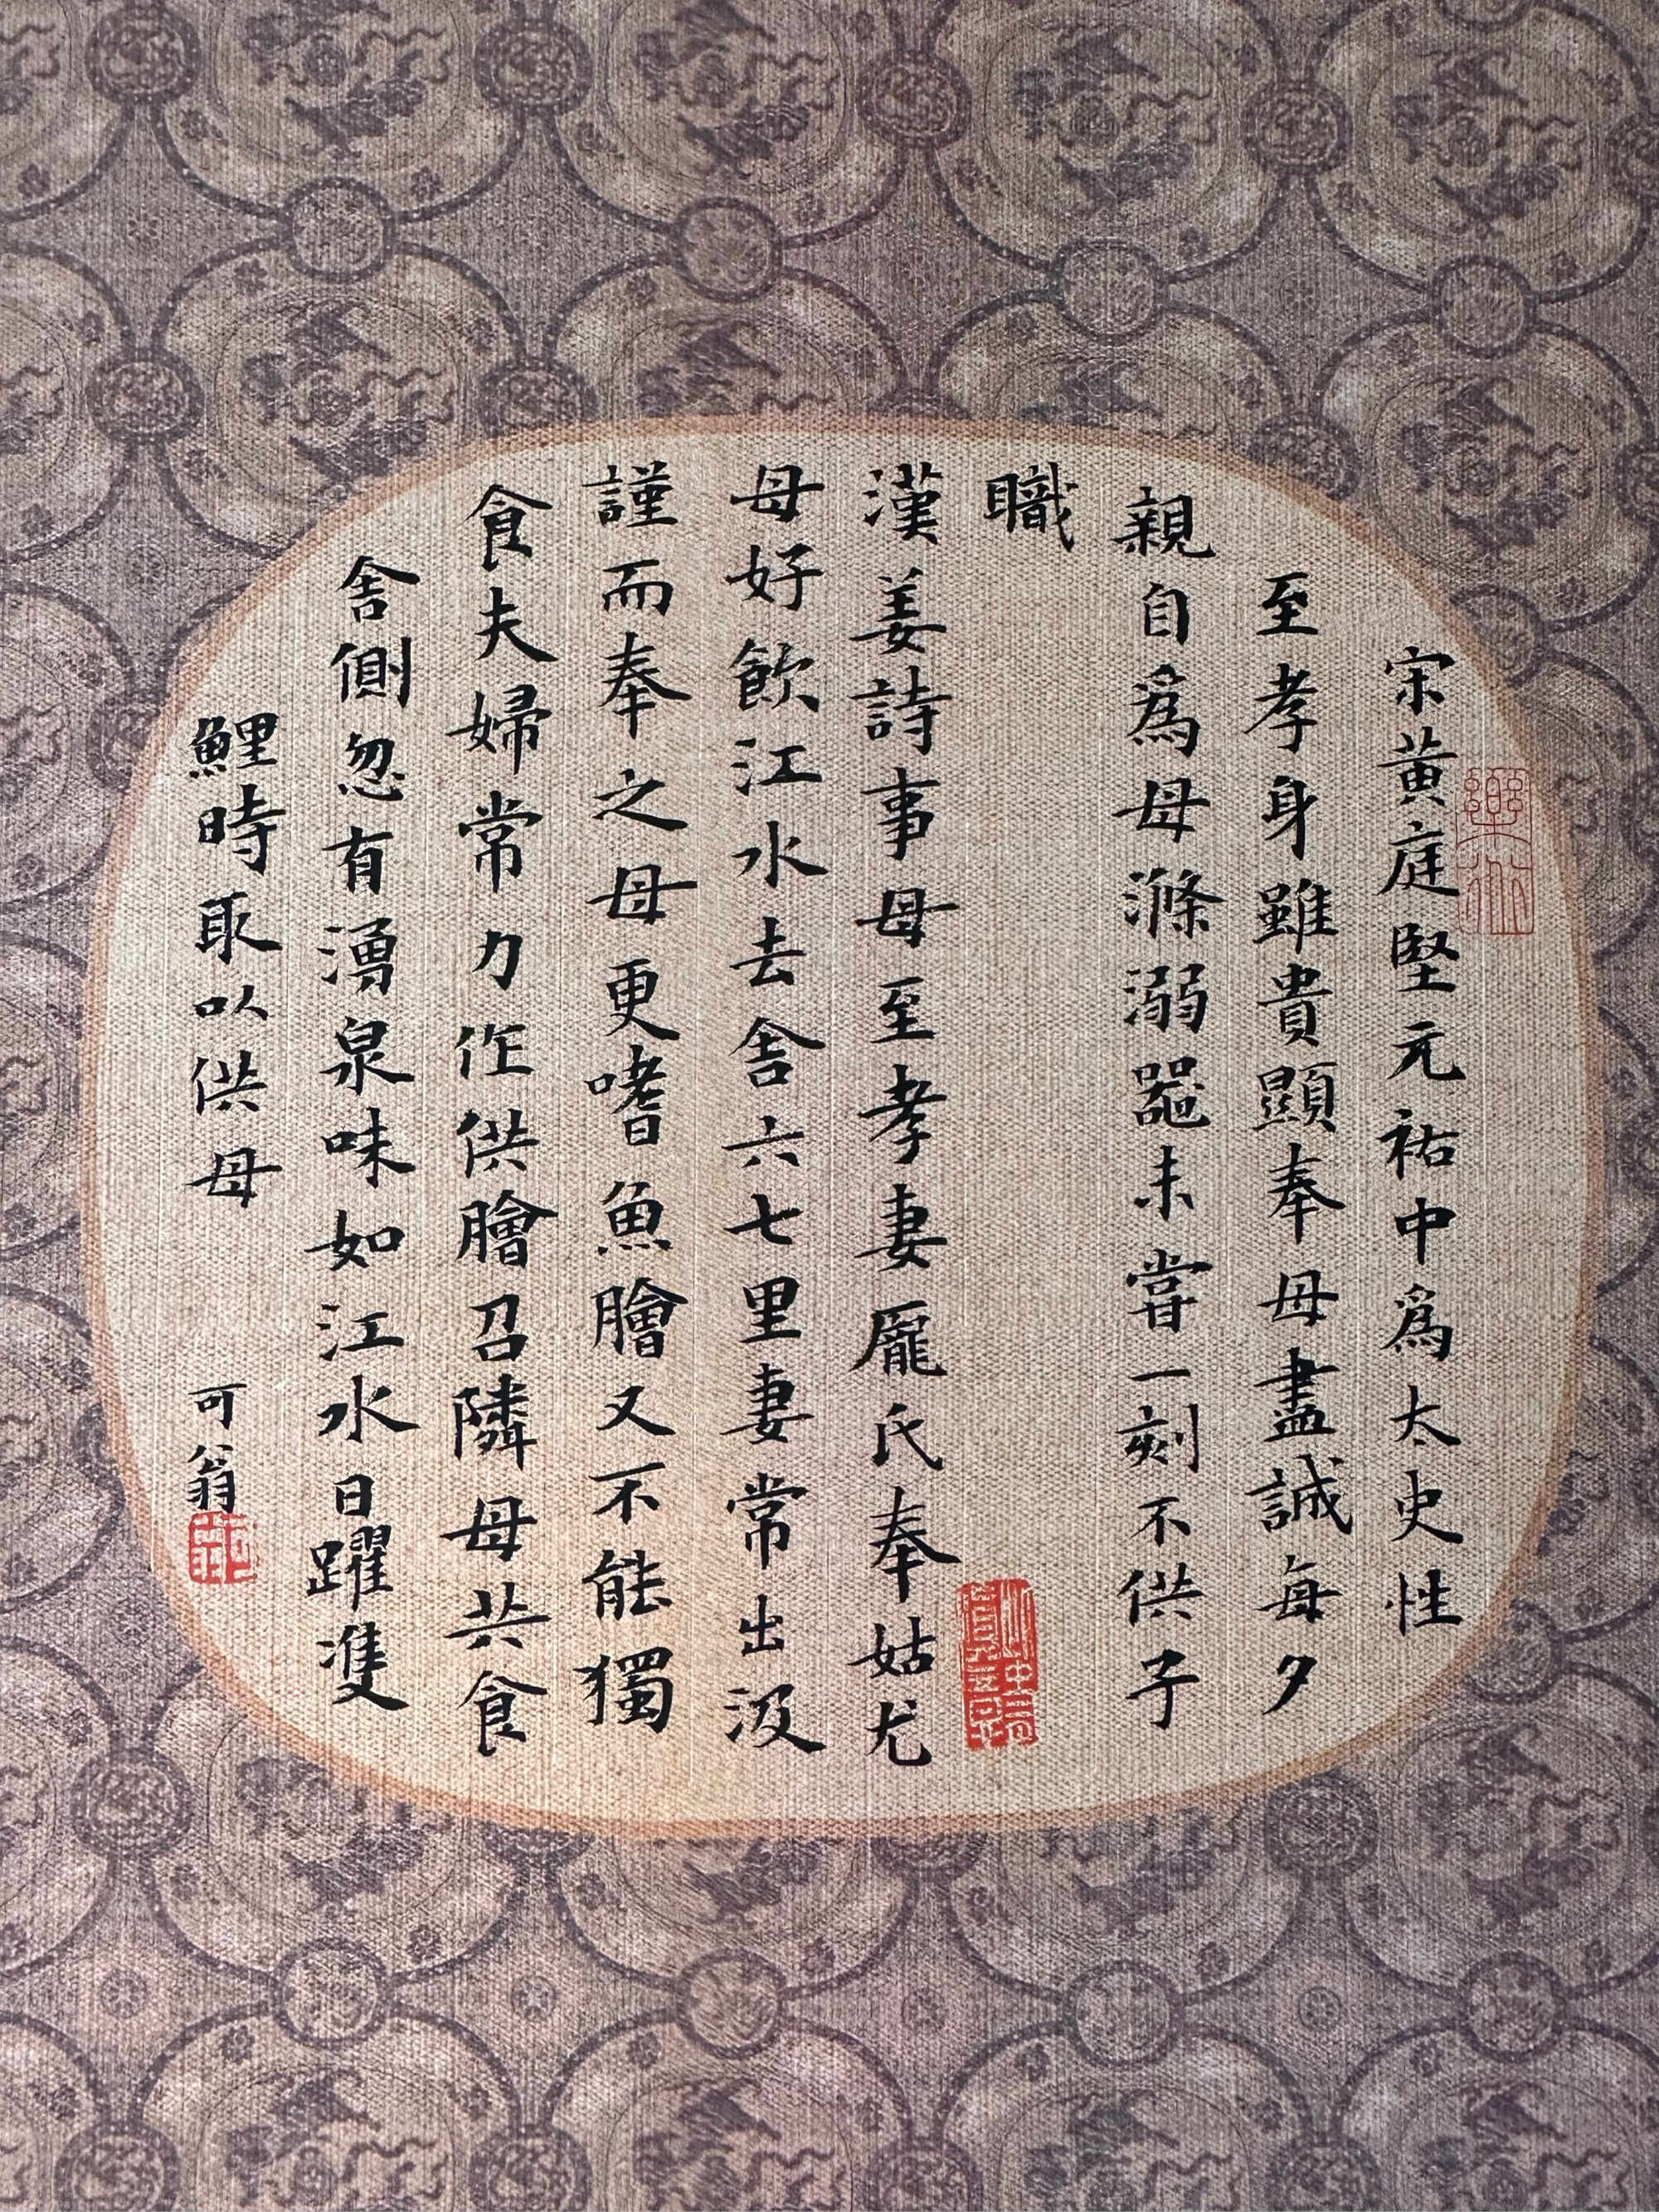 宋黃庭堅元祐中為太史性
至孝身雖貴顯奉母盡誠每夕
親自為母滌溺器未嘗一刻不供子
職
漢姜詩事母至孝妻龐氏奉姑尤
母好飲江水去舍六七里妻常出汲
謹而奉之母更嗜魚膾又不能獨
食夫婦常力作供膾召隣母共食
舍側忽有湧泉味如江水日躍雙
鯉時取以供母
可翁